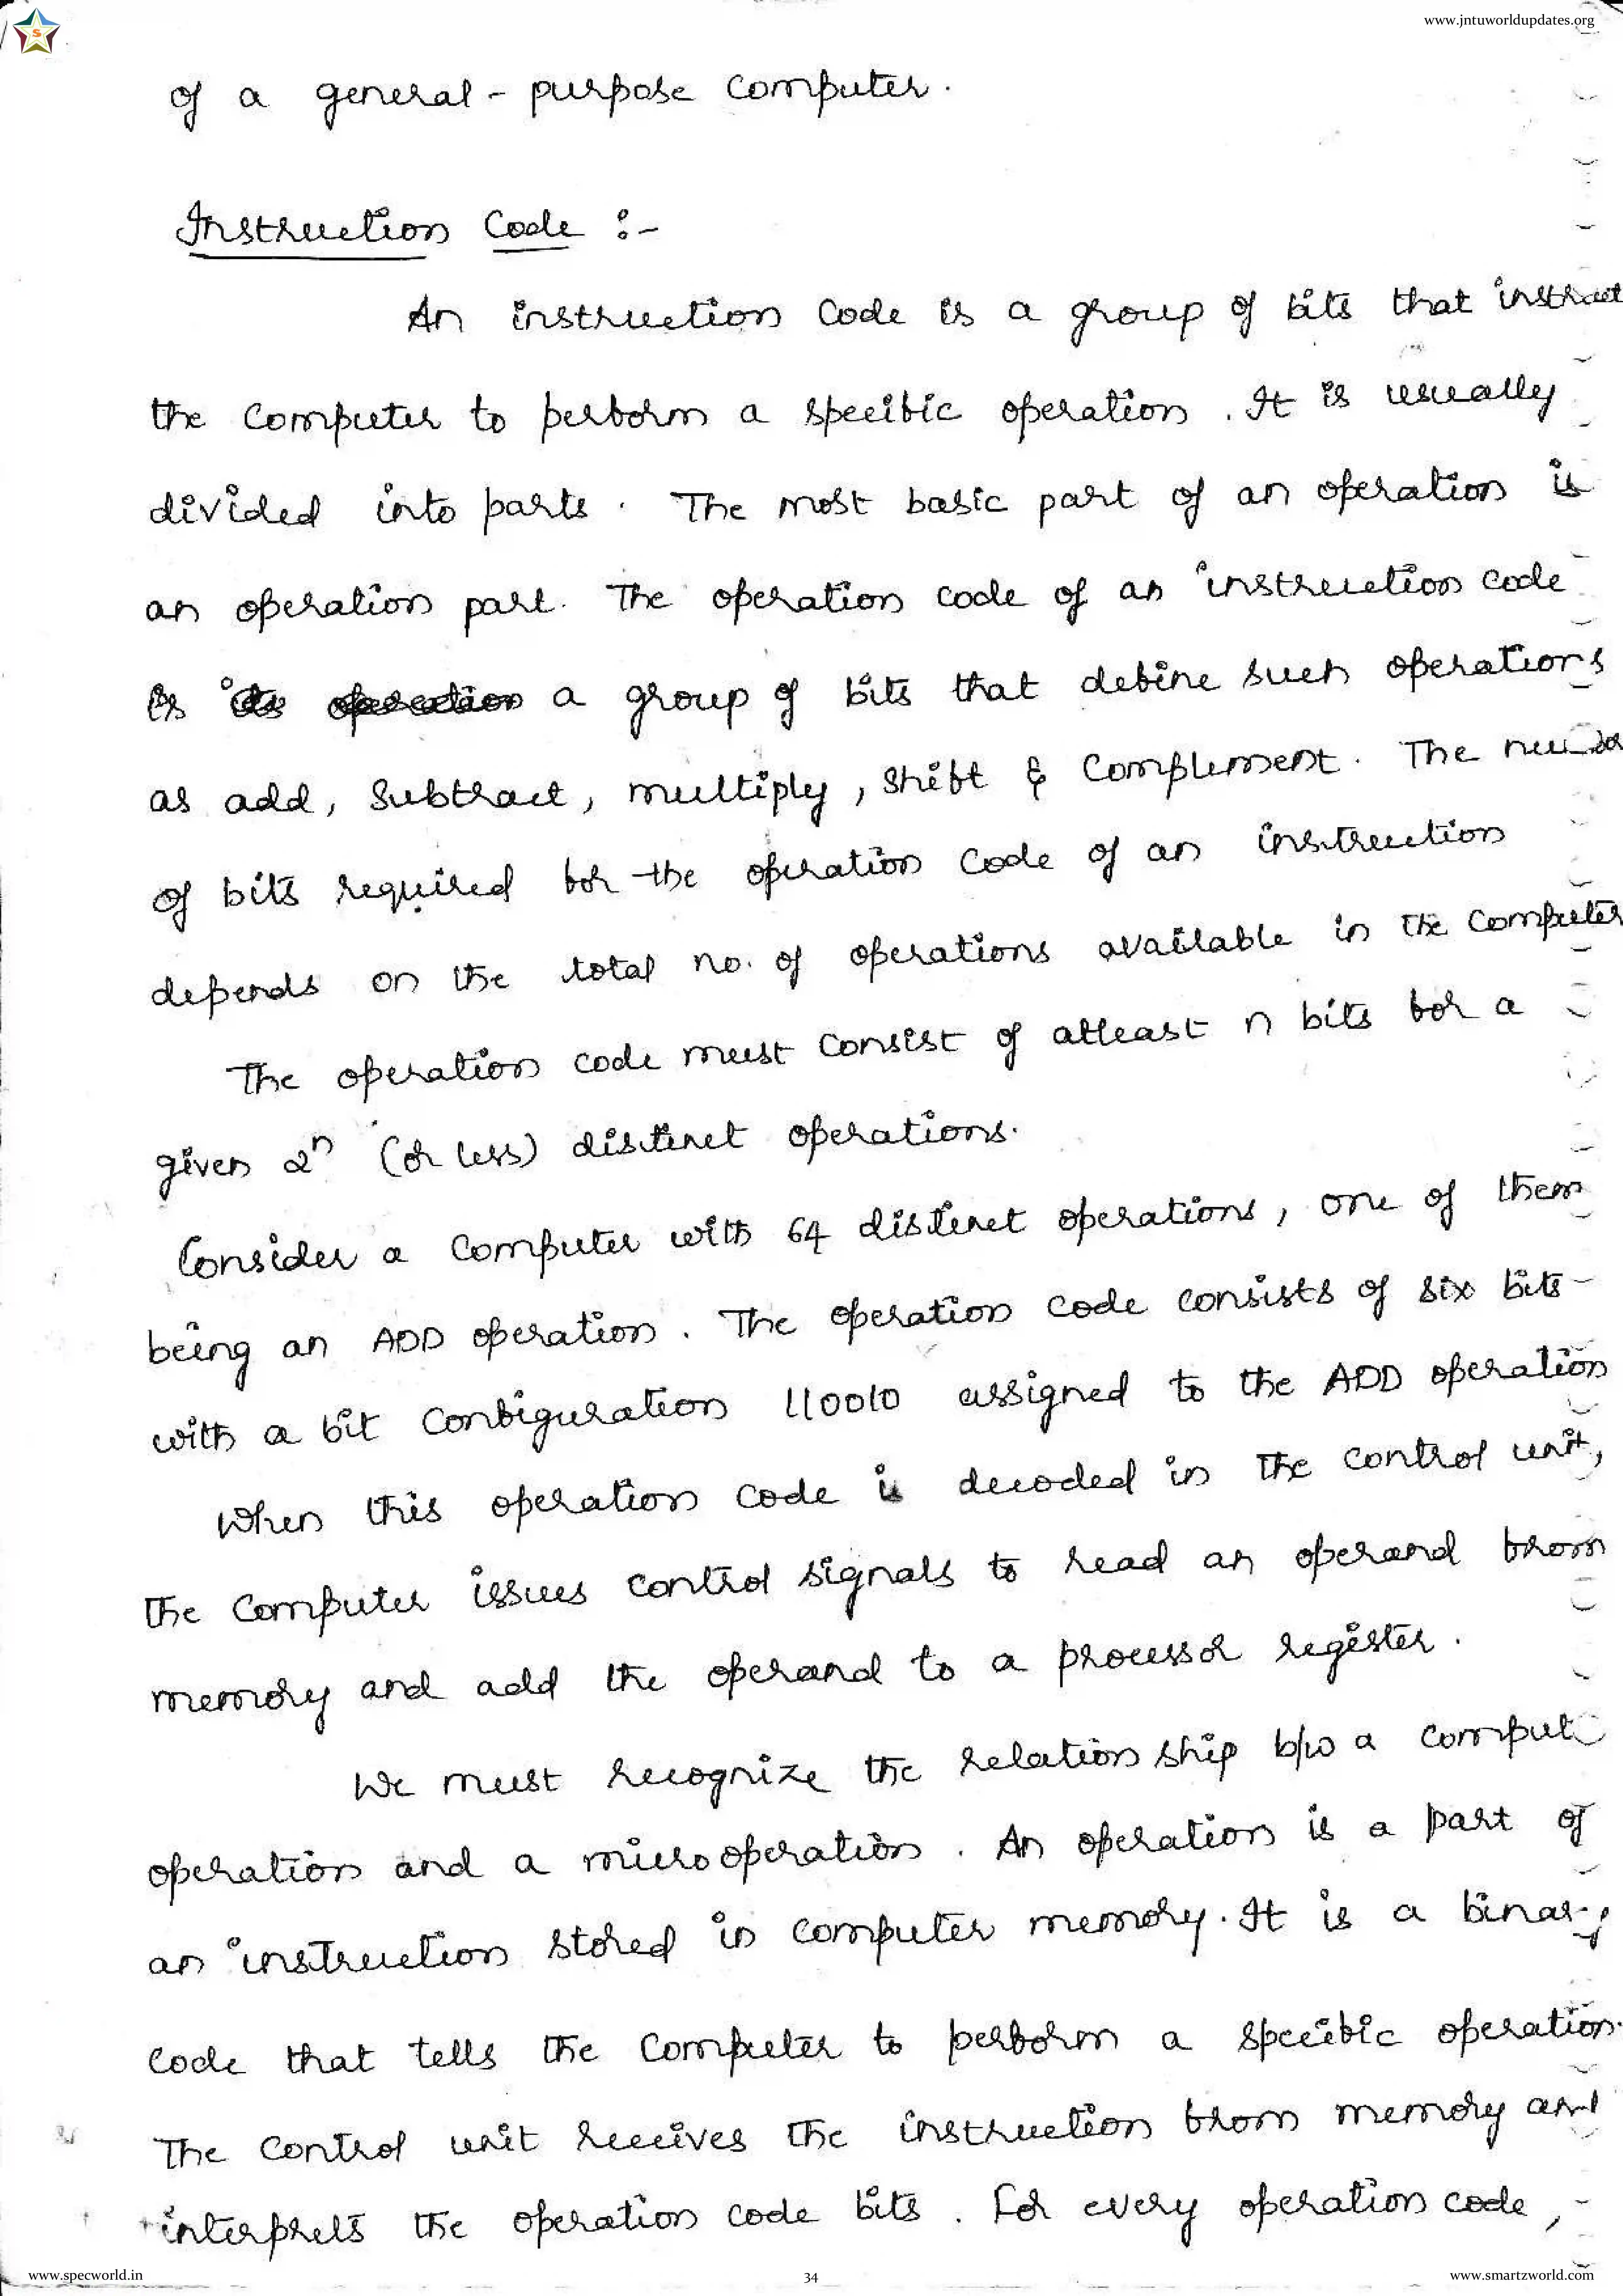 www.jntuworldupdates.org
S
of a general - purpose computer.
Instruction Code :-
An instruction code is a group of bits that instruct
the computer to perform a specific operation. It is usually
divided into parts. The most basic part of an operation is
an operation part. The operation code of an instruction code
is a group of bits that define such operations
as add, subtract, multiply, shift & complement. The
of bits required for the operation code of an instruction
depends on the total no. of operations available in the computer
The operation code must consist of atleast n bits for a
given 2ⁿ (or less) distinct operations.
Consider a computer with 64 distinct operations, one of them
being an ADD operation. The operation code consists of six bits
with a bit configuration 110010 assigned to the ADD operation
When this operation code is decoded in the control unit,
the computer issues control signals to read an operand from
memory and add the operand to a processor register.
We must recognize the relation ship b/w a comput
operation and a micro operation. An operation is a part of
an instruction stored in computer memory. It is a binary
code that tells the computer to perform a specific operation.
The control unit receives the instruction from memory and
interprets the operation code bits. For every operation code,
www.specworld.in
34
www.smartzworld.com